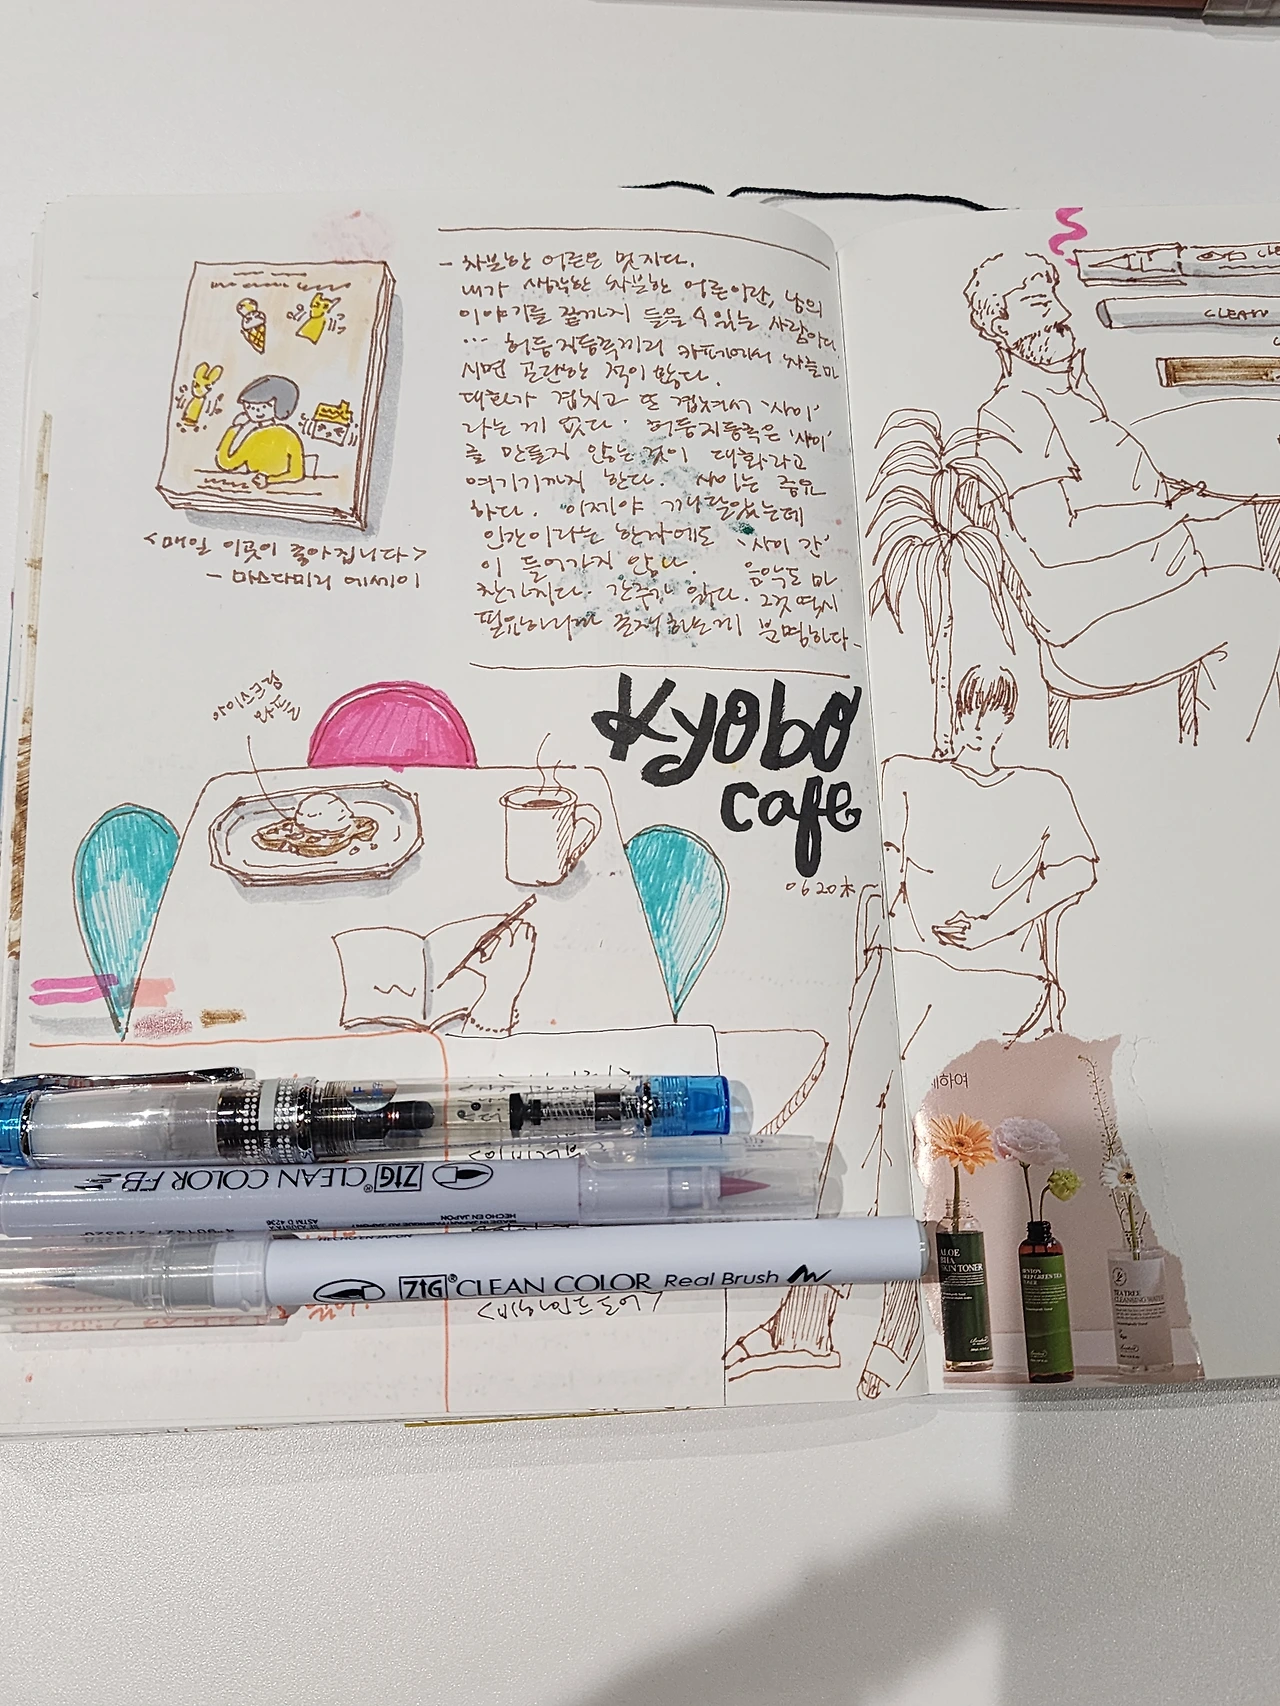 - 차분한 어른은 멋지다.
내가 생각한 차분한 어른이란, 남의
이야기를 끝까지 들을 수 있는 사람이다.
... 허둥지둥족끼리 카페에서 차를 마
시면 곤란한 적이 많다.
대화가 겹치고 또 겹쳐서 '사이'
라는 게 없다. 허둥지둥족은 '사이'
를 만들지 않는 것이 대화라고
여기기까지 한다. 사이는 중요
하다. 이제야 깨달았는데
인간이라는 한자에도 '사이 간'
이 들어가지 않나. 음악도 마
찬가지다. 간주가 있다. 그것 역시
필요하니까 존재하는게 분명하다-
<매일 이곳이 좋아집니다>
- 마스다미리 에세이
아이스크림
와플
Kyobo
cafe
06 20 木
CLEAN
ZIG CLEAN COLOR FB
MADE IN JAPAN
HECHO EN JAPON
ASTM D 4236
ZIG® CLEAN COLOR Real Brush
ALOE
BHA
SKIN TONER
DEEP GREEN TEA
TONER
TEA TREE
CLEANSING WATER